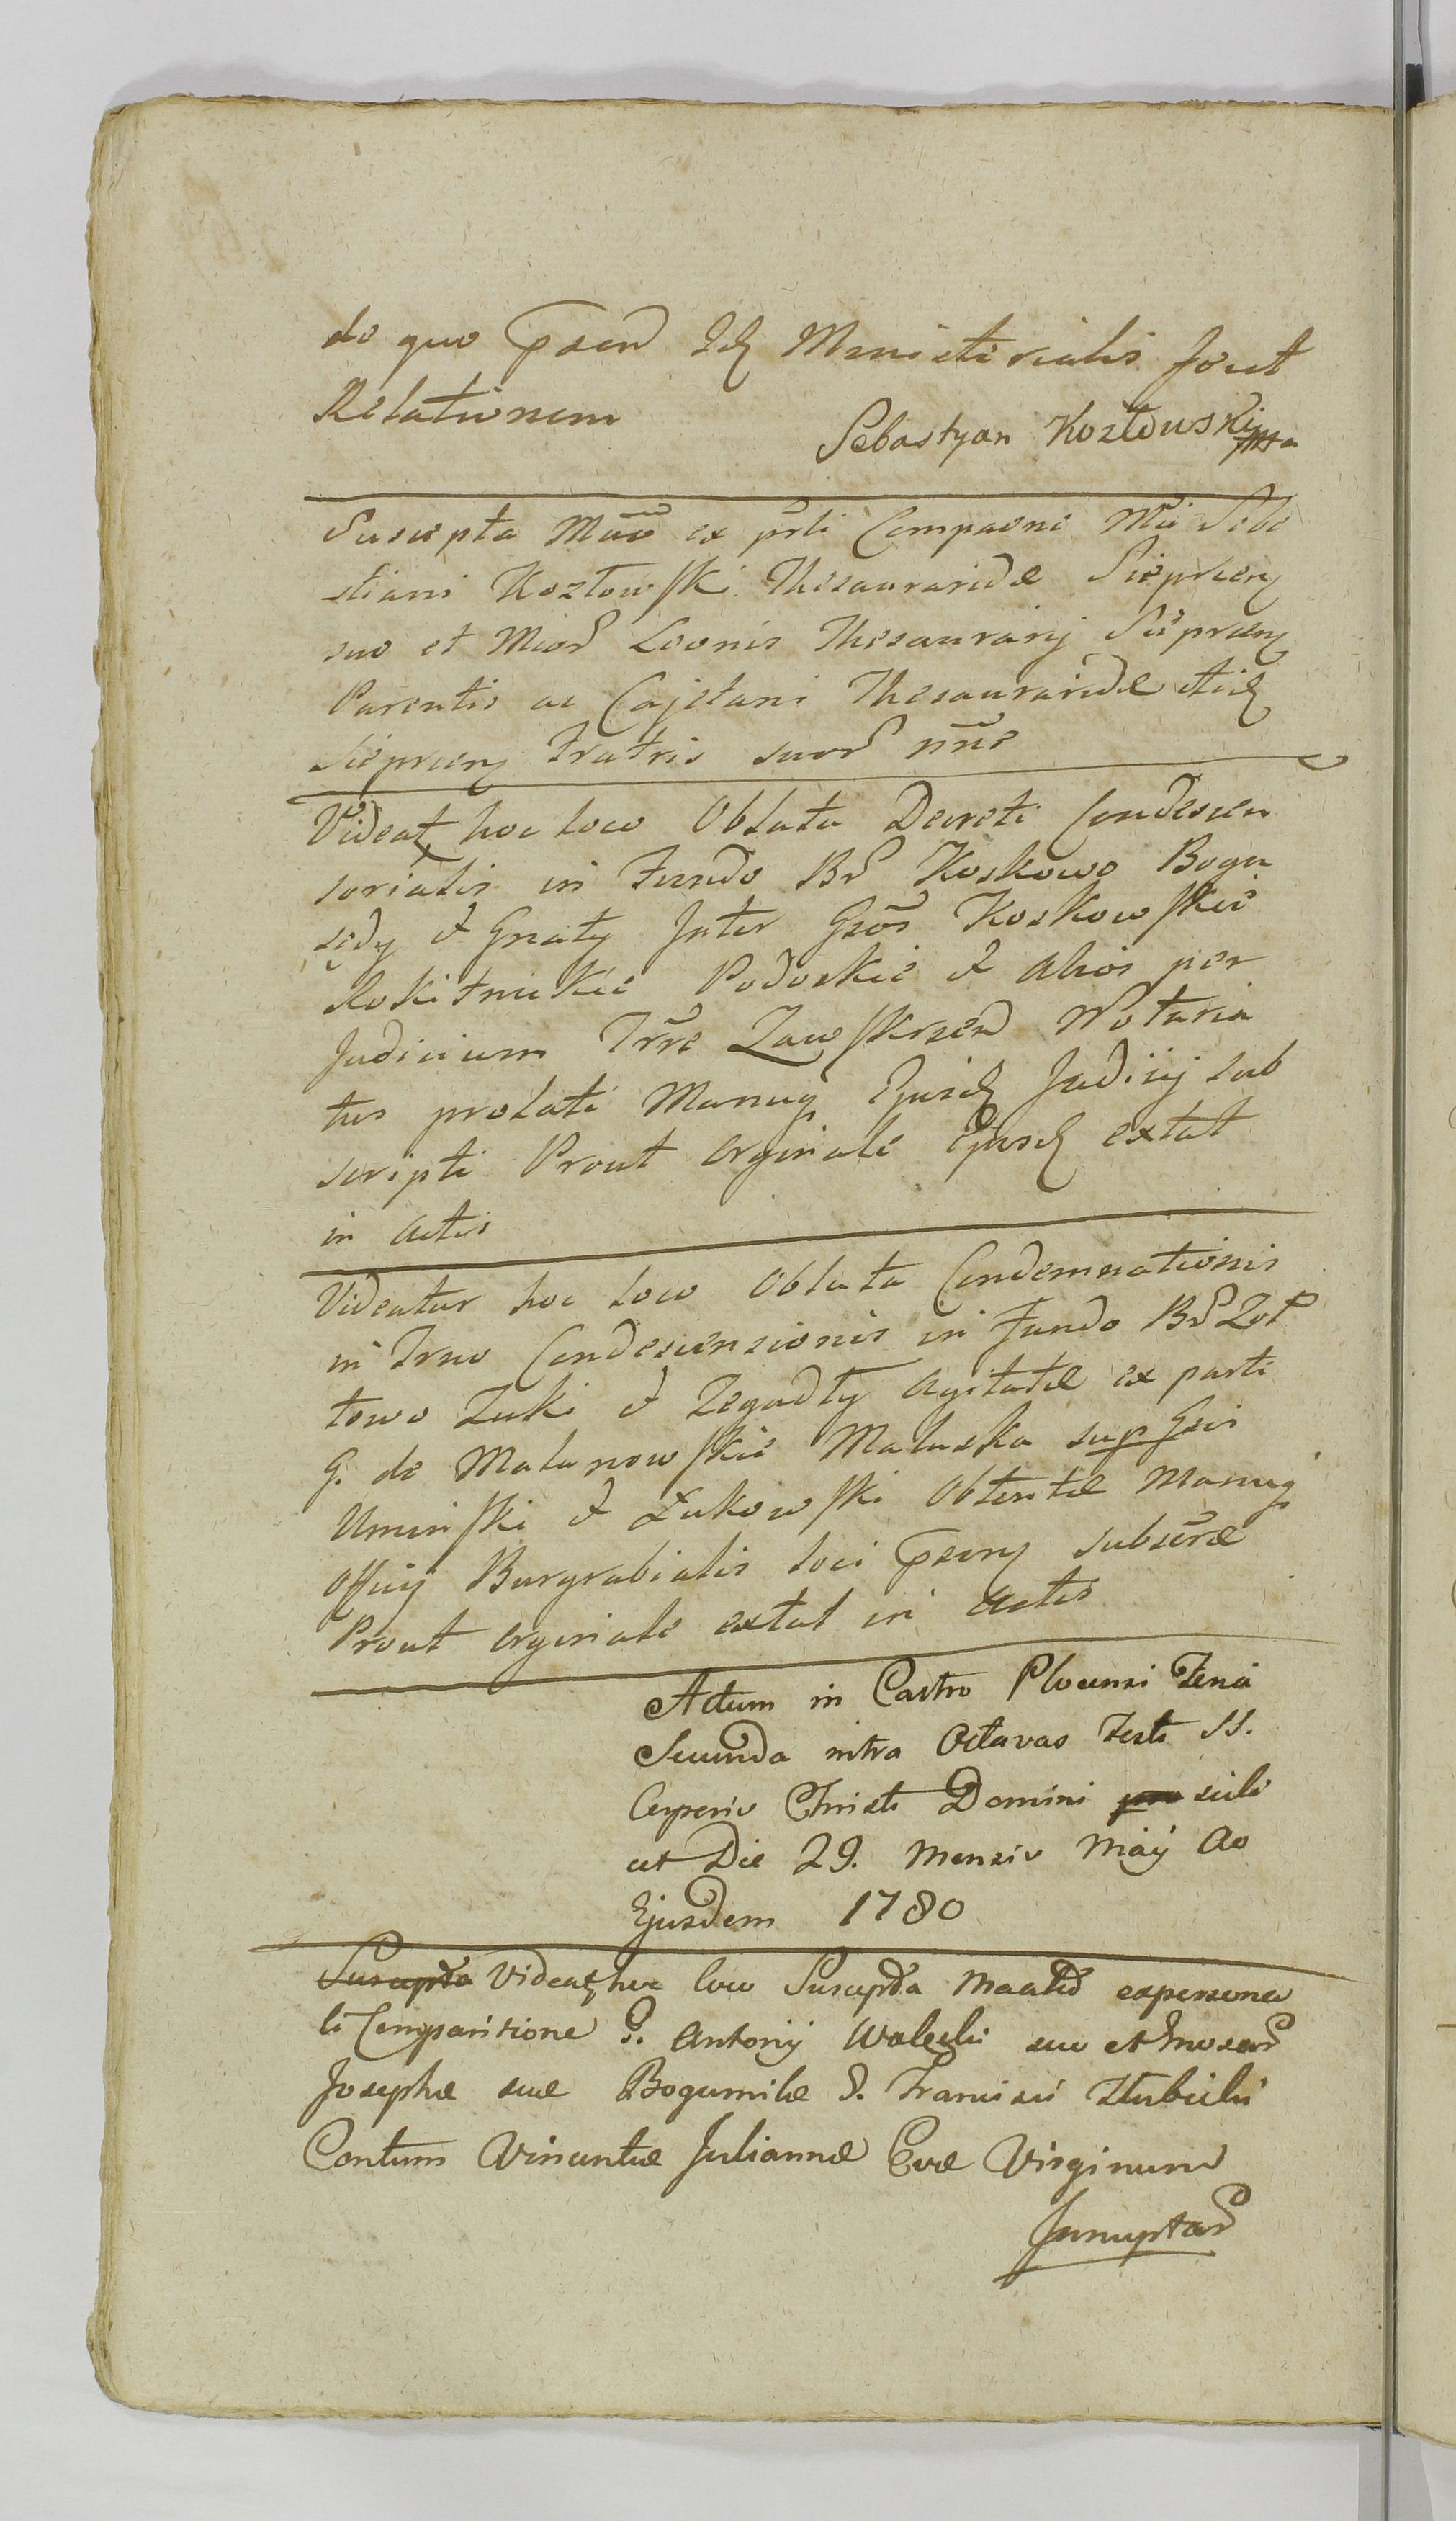 de quo praen Id Ministerialis fecit
Relationem
Sebastyan Kozłowski mpa
Suscepta Mũo ex prli Compaone Mũi Seba
stiani Kozłowski Thesauraridæ Sieprcen
suo et Micor Leonis Thesaurarij Sieprcen
Parentis ac Cajetani Thesauraridæ itid
Sieprcen Fratris suor nñe
Videat hoc loco Oblata Decreti Condescen
sorialis in Fundo Br Koskowo Bogu
sędy & Gnaty Inter Gsos Koskowskie
Rokitnickie Podoskie & Alios per
Judicium Trre Zawskrzen Notaria
tus prolati Manuq Ejusd Judicij sub
scripti Prout orginale Ejusd extat
in Actis
Videatur hoc loco Oblata Condemnationis
in Trno Condescensionis in Fundo Br Zol
towo Zuki & Zegadły Agitatæ ex parte
G. de Malanowskie Maluska sup Gsos
Uminski & Żukowski Obtentæ Manuq
Officij Burgrabialis loci praen subscræ
Prout orginale extat in Actis
Actum in Castro Plocensi Feria
Secunda intra Octavas Festi SS.
Corporis Christi Domini scili
cet Die 29. Mensis Maij Ao
Ejusdem 1780
Suscepta Videat hoc loco Suscepta Maalis expersona
li Comparitione G. Antonij Waleski suo et
Josephæ suæ Bogumilæ G. Francisci
Contum Vincentæ Juliannæ Evæ Virginum
Innuptar